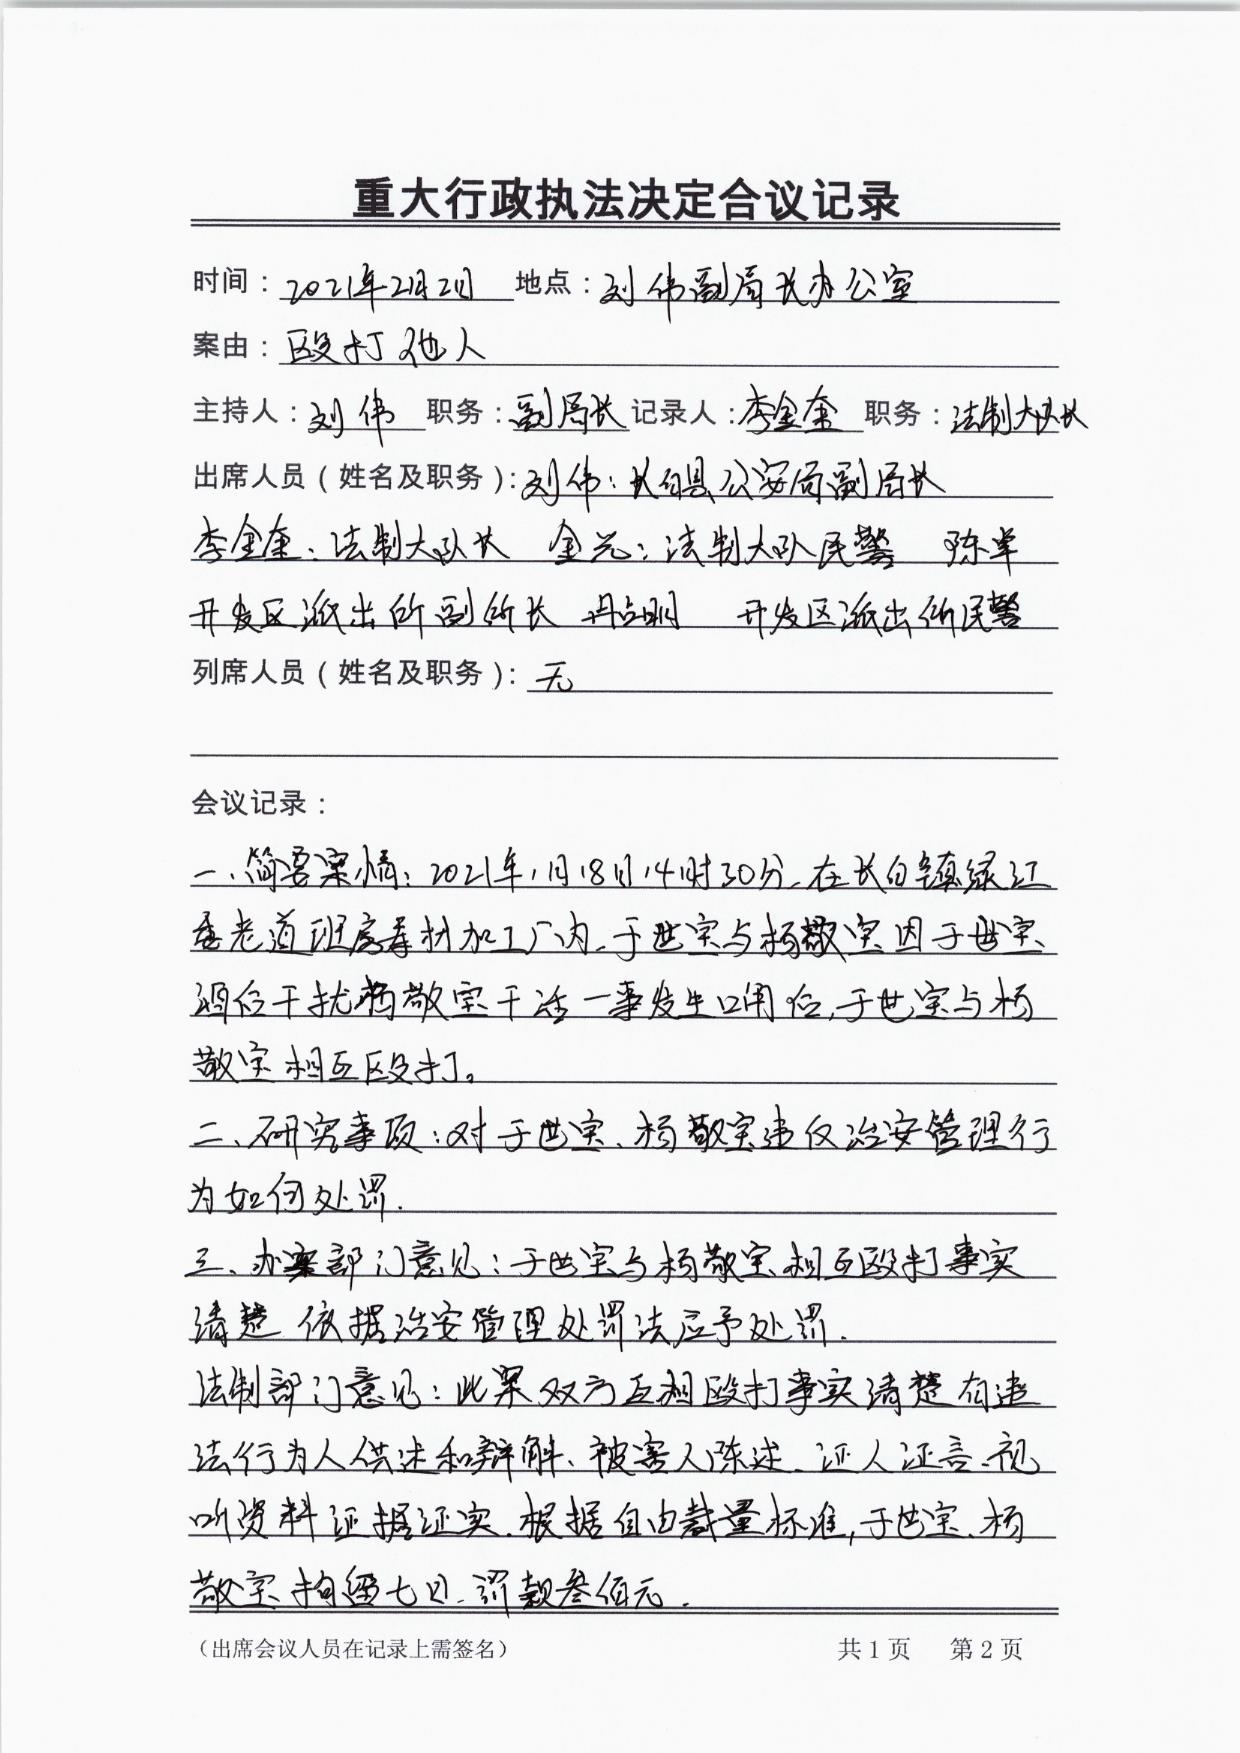 重大行政执法决定合议记录
时间：2021年2月2日 地点：刘伟副局长办公室
案由：殴打他人
主持人：刘伟 职务：副局长 记录人：李金奎 职务：法制大队长
出席人员（姓名及职务）：刘伟：长白县公安局副局长
李金奎：法制大队长 金元：法制大队民警 陈军
开发区派出所副所长 开发区派出所民警
列席人员（姓名及职务）：无
会议记录：
一、简要案情：2021年1月18日14时30分、在长白镇绿江
老道班房木材加工厂内、于世宝与杨敬宝因于世宝
酒后干扰杨敬宝干活一事发生口角后，于世宝与杨
敬宝相互殴打。
二、研究事项：对于世宝、杨敬宝违反治安管理行
为如何处罚.
三、办案部门意见：于世宝与杨敬宝相互殴打事实
清楚 依据治安管理处罚法应予处罚.
法制部门意见：此案双方互相殴打事实清楚 有违
法行为人供述和辩解、被害人陈述、证人证言、视
听资料证据证实.根据自由裁量标准，于世宝、杨
敬宝拘留七日、罚款叁佰元.
（出席会议人员在记录上需签名） 共1页 第2页